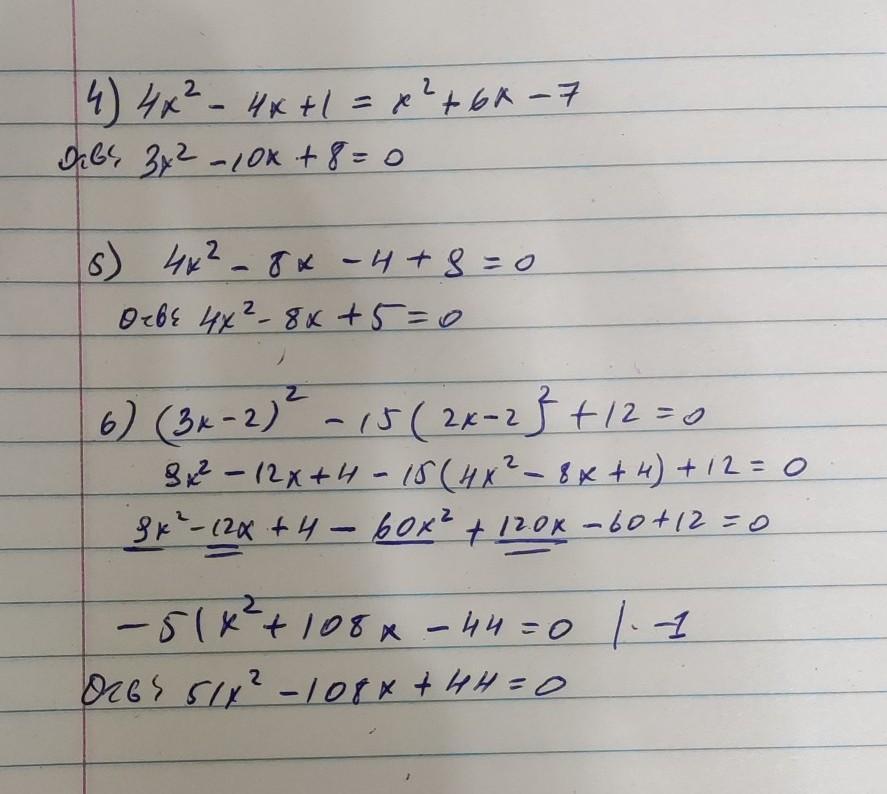 4) 4x² - 4x + 1 = x² + 6x - 7
Отв: 3x² - 10x + 8 = 0
5) 4x² - 8x - 4 + 9 = 0
Отв: 4x² - 8x + 5 = 0
6) (3x - 2)² - 15(2x - 2)² + 12 = 0
9x² - 12x + 4 - 15(4x² - 8x + 4) + 12 = 0
9x² - 12x + 4 - 60x² + 120x - 60 + 12 = 0
-51x² + 108x - 44 = 0 |· -1
Отв: 51x² - 108x + 44 = 0